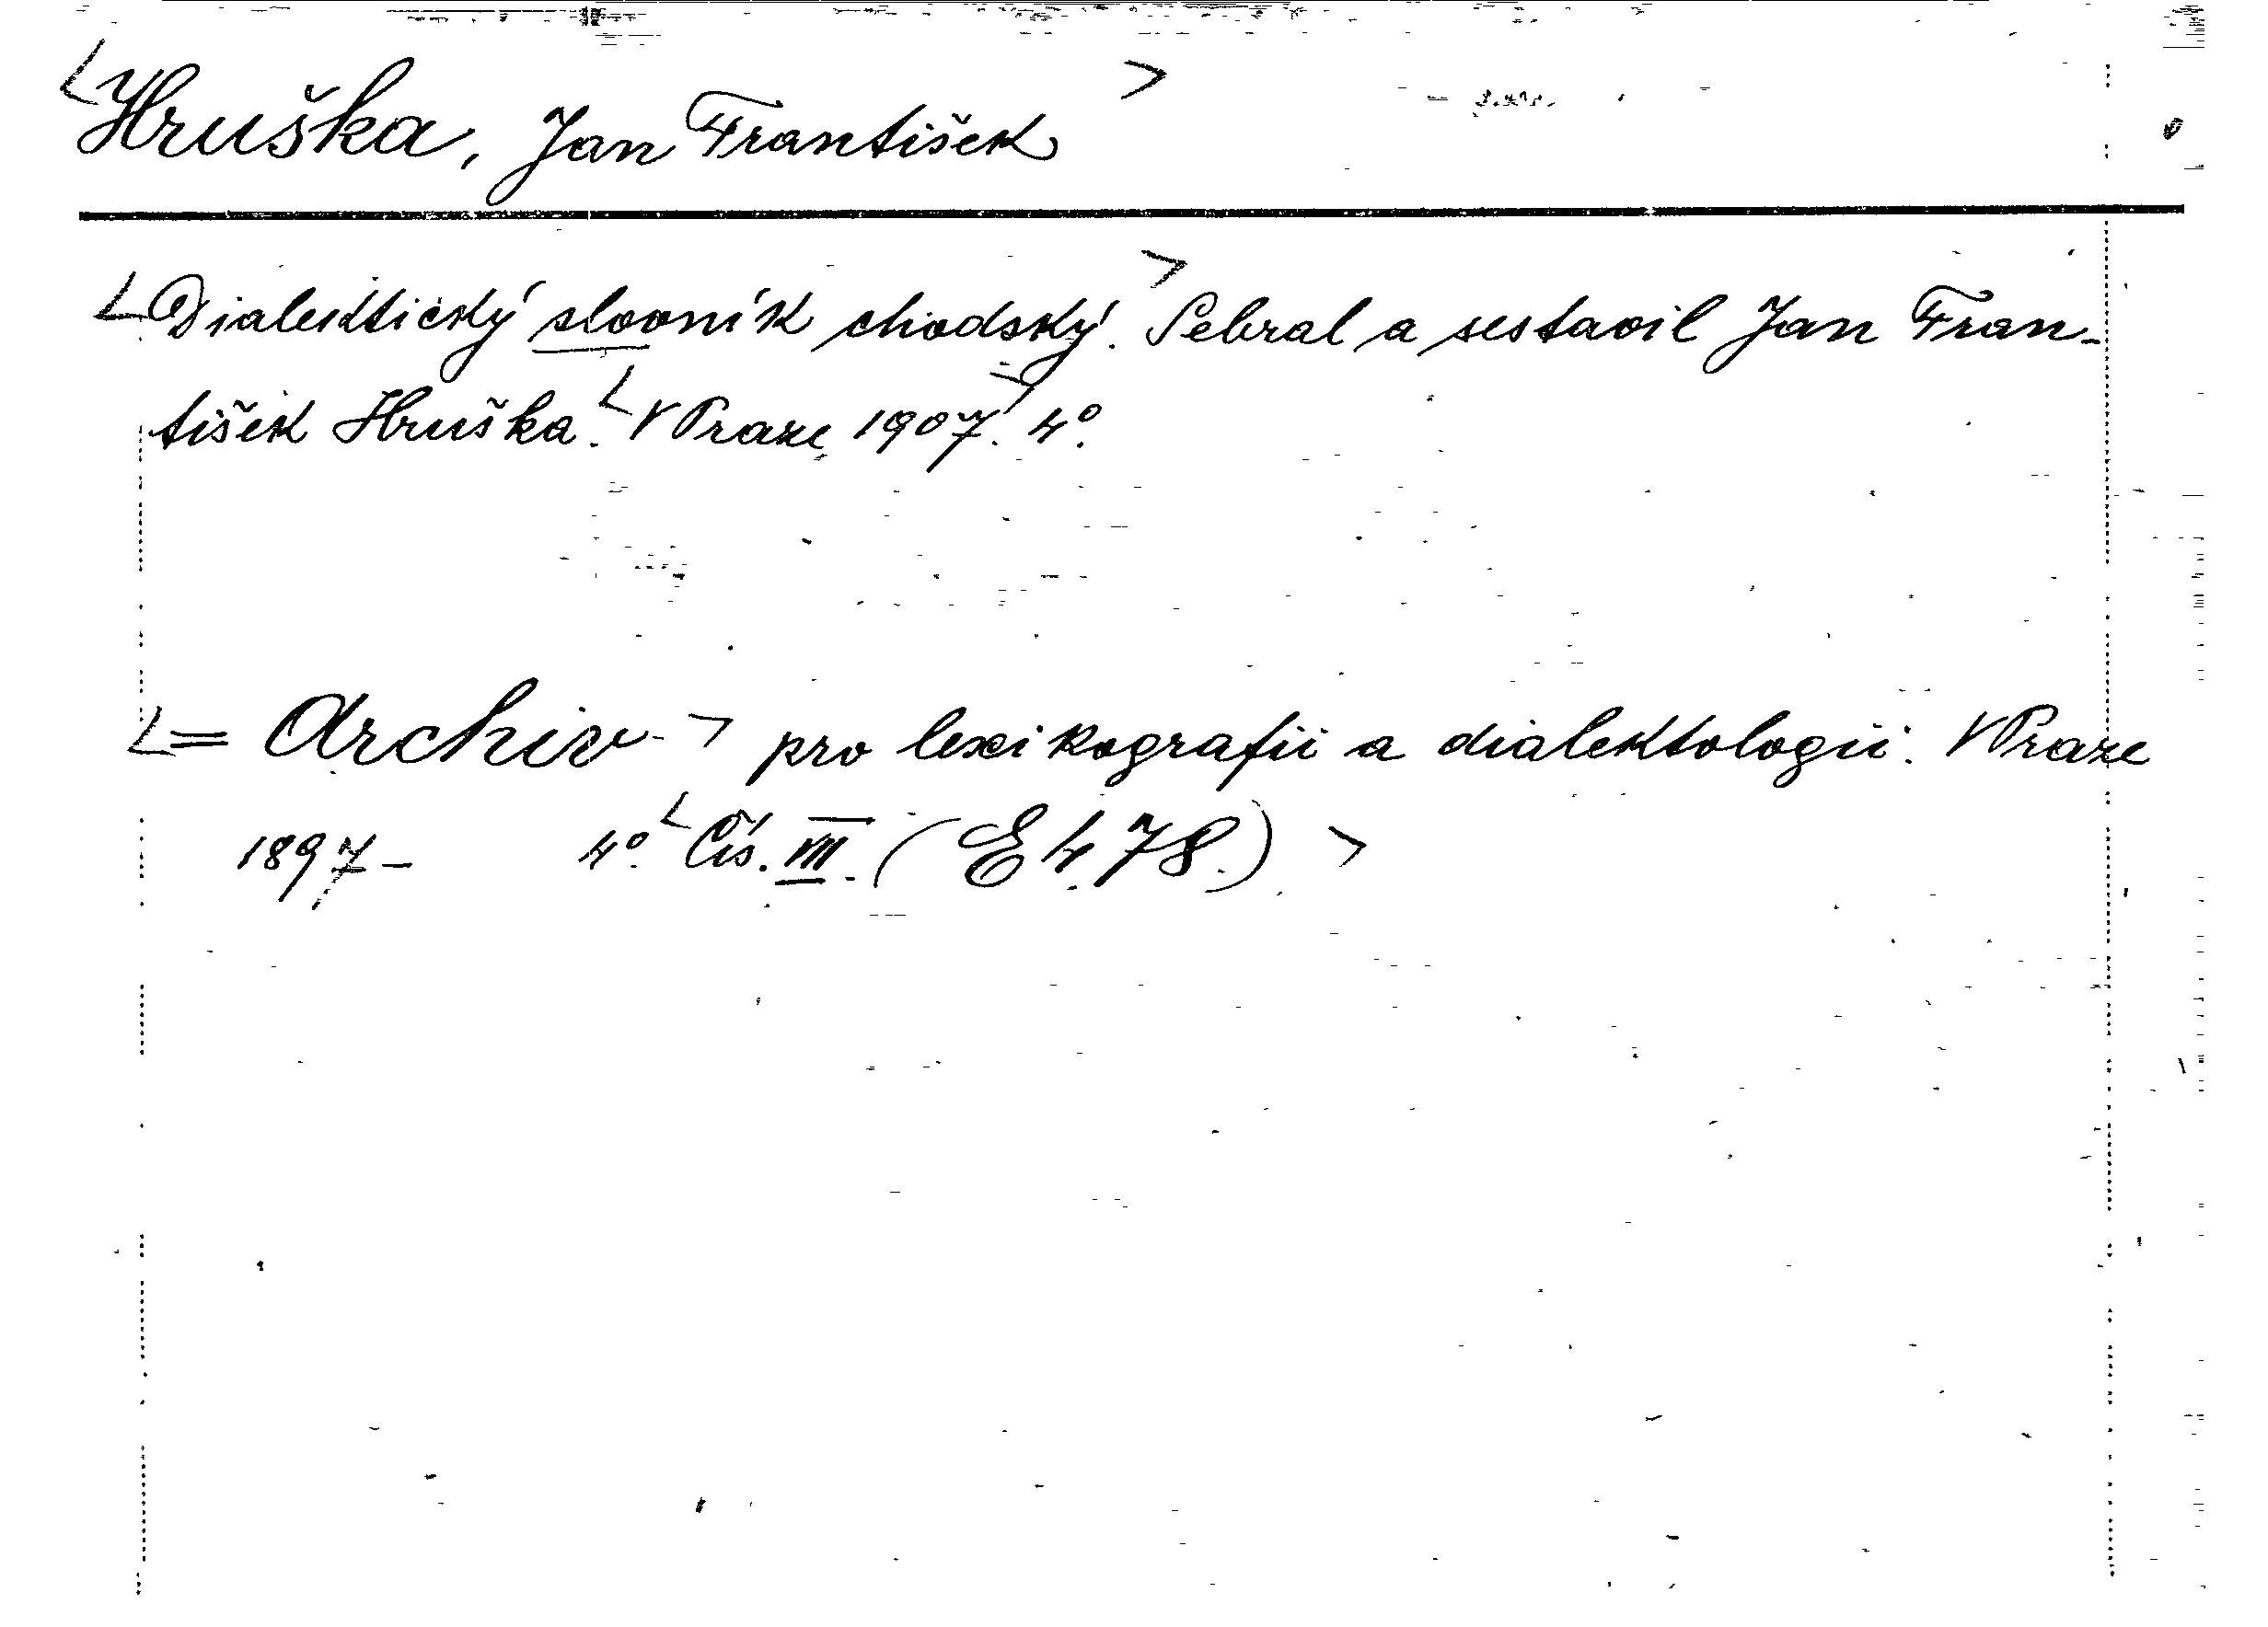 <Hruška, Jan František>
<Dialektický slovník chodský.> Sebral a sestavil Jan Fran-
tišek Hruška. <V Praze 1907.> 4°.
<= Archiv> pro lexikografii a dialektologii. V Praze
1897- 4°. <Čís. VII. (E 4.78.)>